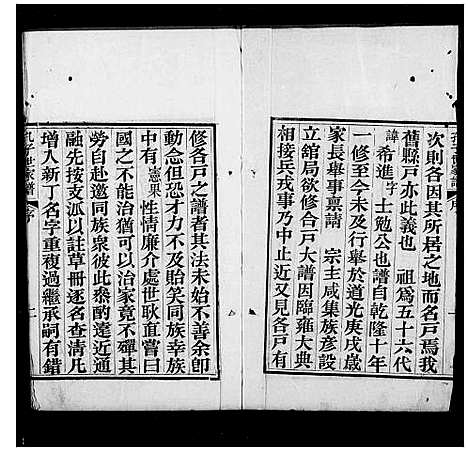 次則各因其所居之地而名戶焉我
舊縣戶亦此義也　祖為五十六代
諱希進字士勉公也譜自乾隆十年
一修至今未及行舉於道光庚戌歲
家長舉事稟請　宗主咸集族彥設
立舘局欲修合戶大譜因臨雍大典
相接兵戎事乃中止近又見各戶有
修各戶之譜者其法未始不善余卽
動念但恐才力不及貽笑同族幸族
中有憲果性情廉介處世耿直嘗曰
國之不能治猶可以治家竟不殫其
勞自赴邀同族衆彼此叅酌遠近通
融先按支派以註草冊逐名查清凡
增入新丁名字重複過繼承嗣有錯
孔子世家譜
序
二